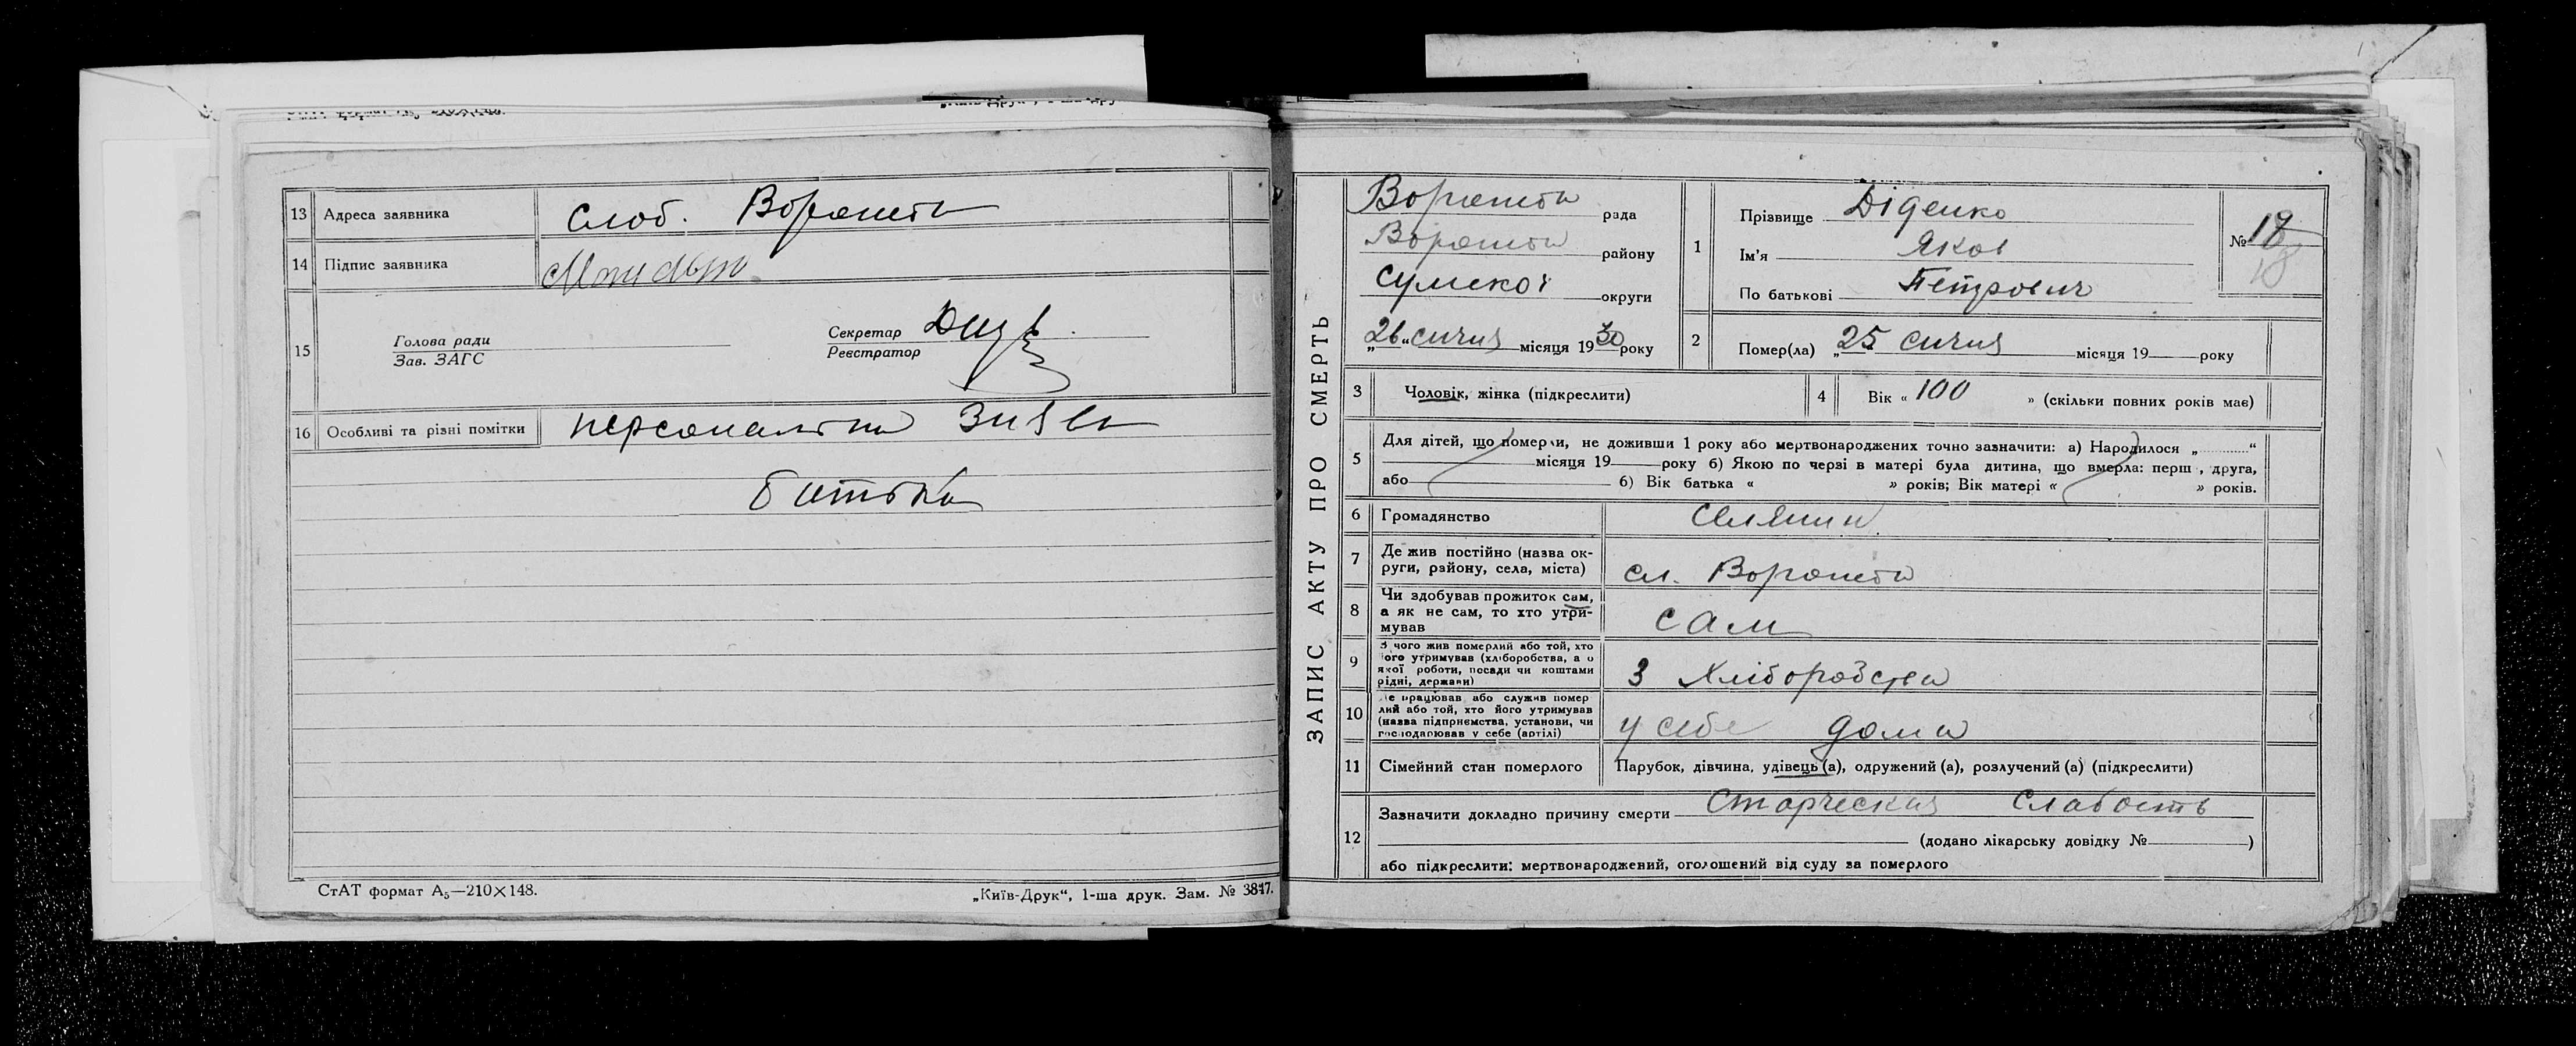 13 Адреса заявника слоб. Ворожба
14 Підпис заявника
15 Голова ради
Зав. ЗАГС
Секретар
Реєстратор
16 Особливі та різні помітки персонально знав
батька
СтАТ формат А₅—210×148.
„Київ-Друк“, 1-ша друк. Зам. № 3847.
ЗАПИС АКТУ ПРО СМЕРТЬ
Ворожба рада
Ворожба району
Сумської округи
„26“ січня місяця 1930 року
1 Прізвище Діденко
Ім'я Яков
По батькові Петрович
№ 18
18
2 Помер(ла) „25 січня місяця 19 року
3 Чоловік, жінка (підкреслити)
4 Вік « 100 » (скільки повних років має)
5 Для дітей, що померли, не доживши 1 року або мертвонароджених точно зазначити: а) Народилося „ “
місяця 19 року б) Якою по черзі в матері була дитина, що вмерла: перш , друга,
або б) Вік батька « » років; Вік матері « » років.
6 Громадянство селянин
7 Де жив постійно (назва ок-
руги, району, села, міста) сл. Ворожба
8 Чи здобував прожиток сам,
а як не сам, то хто утри-
мував сам
9 З чого жив померлий або той, хто
його утримував (хліборобства, а о
якої роботи, посади чи коштами
рідні, держави) З Хліборобства
10 Де працював або служив помер
лий або той, хто його утримував
(назва підприємства, установи, чи
господарював у себе (артілі) у себе дома
11 Сімейний стан померлого Парубок, дівчина, удівець (а), одружений (а), розлучений (а) (підкреслити)
12 Зазначити докладно причину смерти Старческая Слабость
(додано лікарську довідку № )
або підкреслити: мертвонароджений, оголошений від суду за померлого